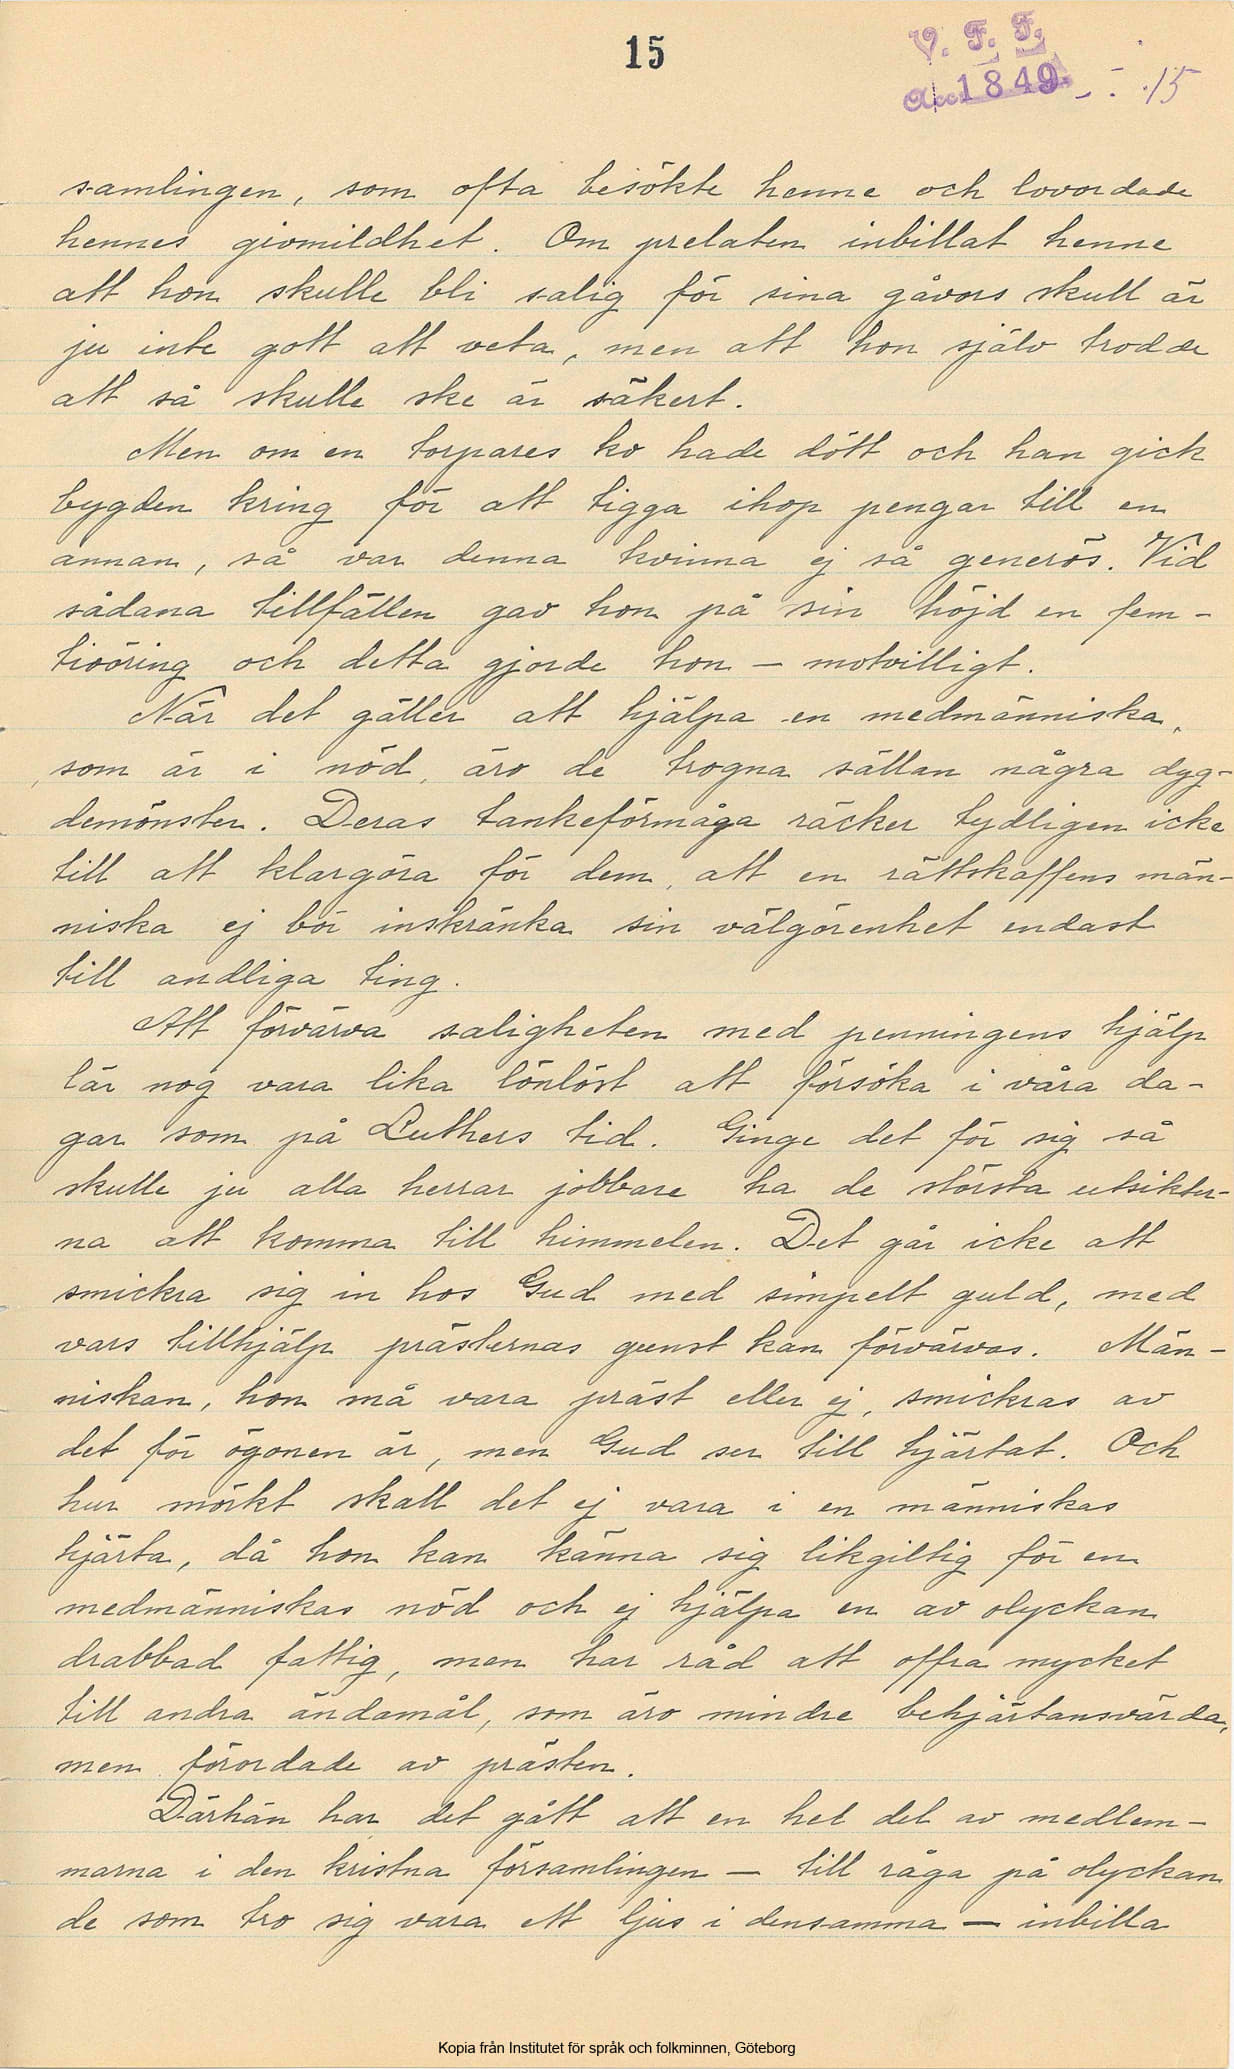 15
V. F. F.
Acc. 1849. - : .15
samlingen, som ofta besökte henne och lovordade
hennes givmildhet. Om prelaten inbillat henne
att hon skulle bli salig för sina gåvors skull är
ju inte gott att veta, men att hon själv trodde
att så skulle ske är säkert.
Men om en torpares ko hade dött och han gick
bygden kring för att tigga ihop pengar till en
annan, så var denna kvinna ej så generös. Vid
sådana tillfällen gav hon på sin höjd en fem-
tioöring och detta gjorde hon — motvilligt.
När det gäller att hjälpa en medmänniska,
som är i nöd, äro de trogna sällan några dyg-
demönster. Deras tankeförmåga räcker tydligen icke
till att klargöra för dem, att en rättskaffens män-
niska ej bör inskränka sin välgörenhet endast
till andliga ting.
Att förvärva saligheten med penningens hjälp
lär nog vara lika lönlöst att försöka i våra da-
gar som på Luthers tid. Ginge det för sig så
skulle ju alla herrar jobbare ha de största utsikter-
na att komma till himmelen. Det går icke att
smickra sig in hos Gud med simpelt guld, med
vars tillhjälp prästernas gunst kan förvärvas. Män-
niskan, hon må vara präst eller ej, smickras av
det för ögonen är, men Gud ser till hjärtat. Och
hur mörkt skall det ej vara i en människas
hjärta, då hon kan känna sig likgiltig för en
medmänniskas nöd och ej hjälpa en av olyckan
drabbad fattig, men har råd att offra mycket
till andra ändamål, som äro mindre behjärtansvärda,
men förordade av prästen.
Därhän har det gått att en hel del av medlem-
marna i den kristna församlingen — till råga på olyckan
de som tro sig vara ett ljus i densamma — inbilla
Kopia från Institutet för språk och folkminnen, Göteborg